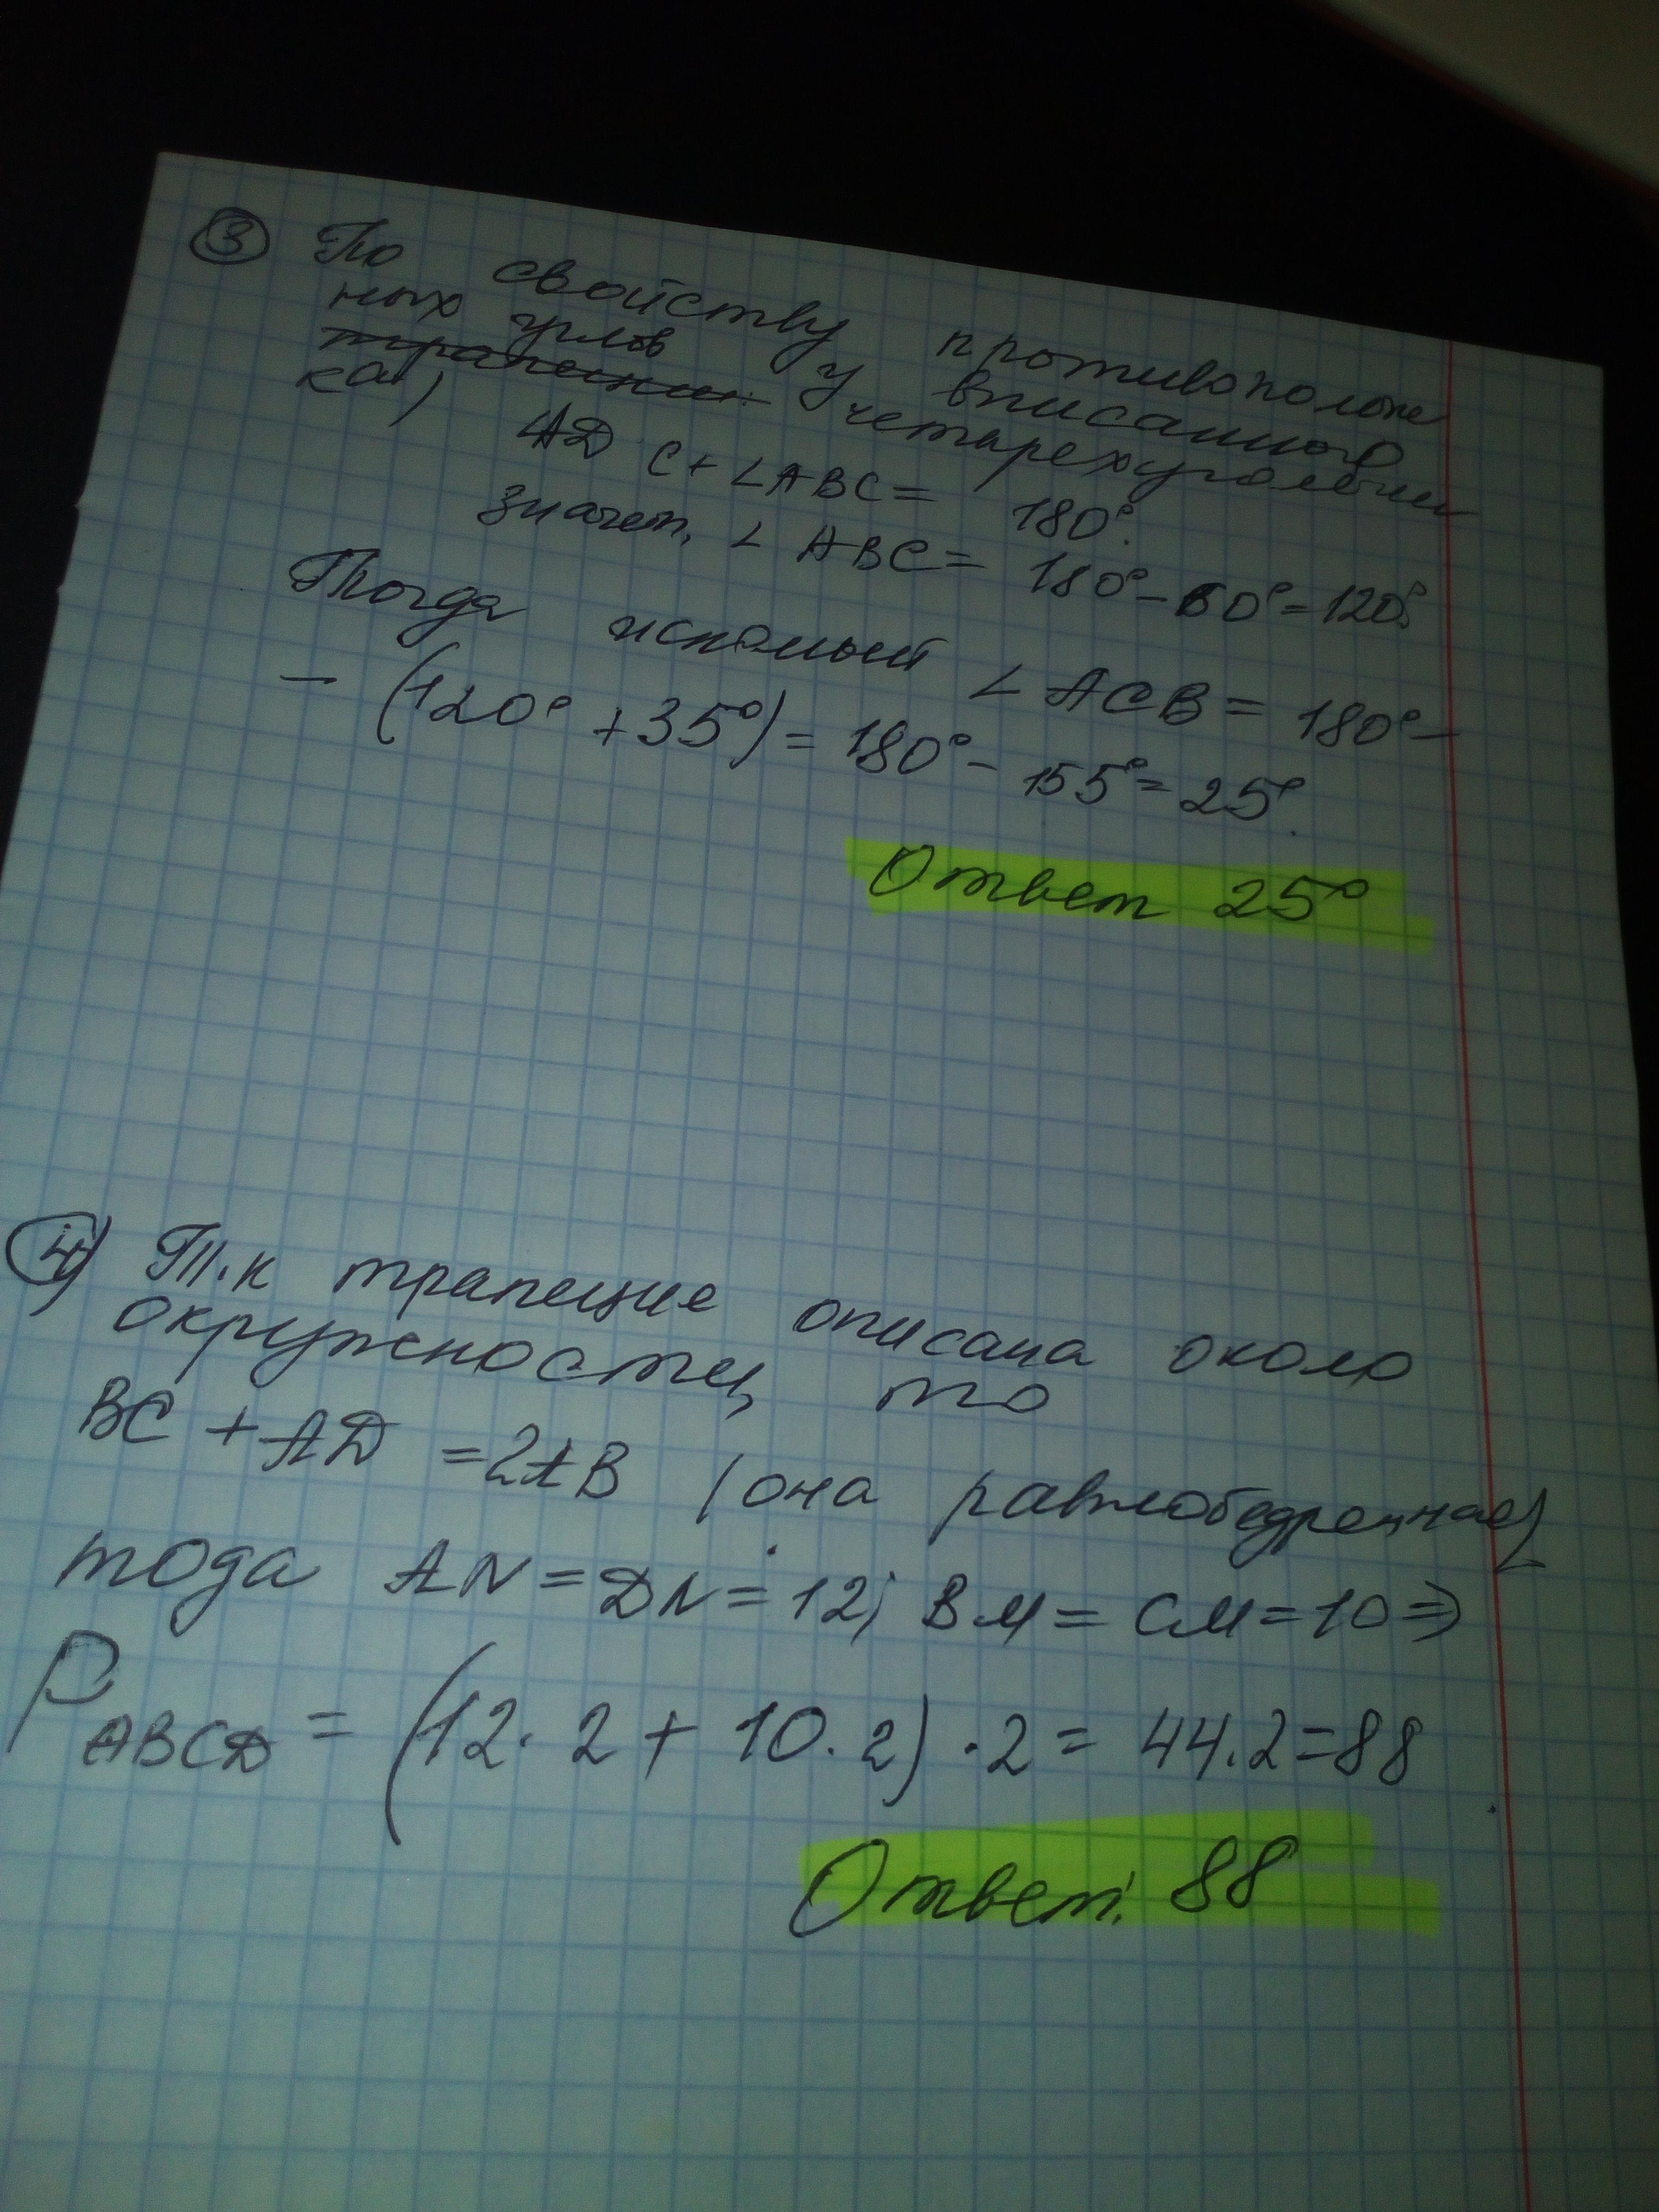 3 По свойству противополож
ных углов у вписанного
трапеции четырехугольни
ка)
∠АD С + ∠АВС = 180°.
значит, ∠ АВС = 180° - 60° = 120°.
Тогда искомый ∠ АСВ = 180° -
- (120° + 35°) = 180° - 155° = 25°.
Ответ 25°
4) Т.к трапеция описана около
окружности, то
ВС + АD = 2АВ (она равнобедренная)
тода АN = DN = 12; ВМ = СМ = 10 ⇒
P ABCD = (12 · 2 + 10 · 2) · 2 = 44 · 2 = 88
Ответ: 88